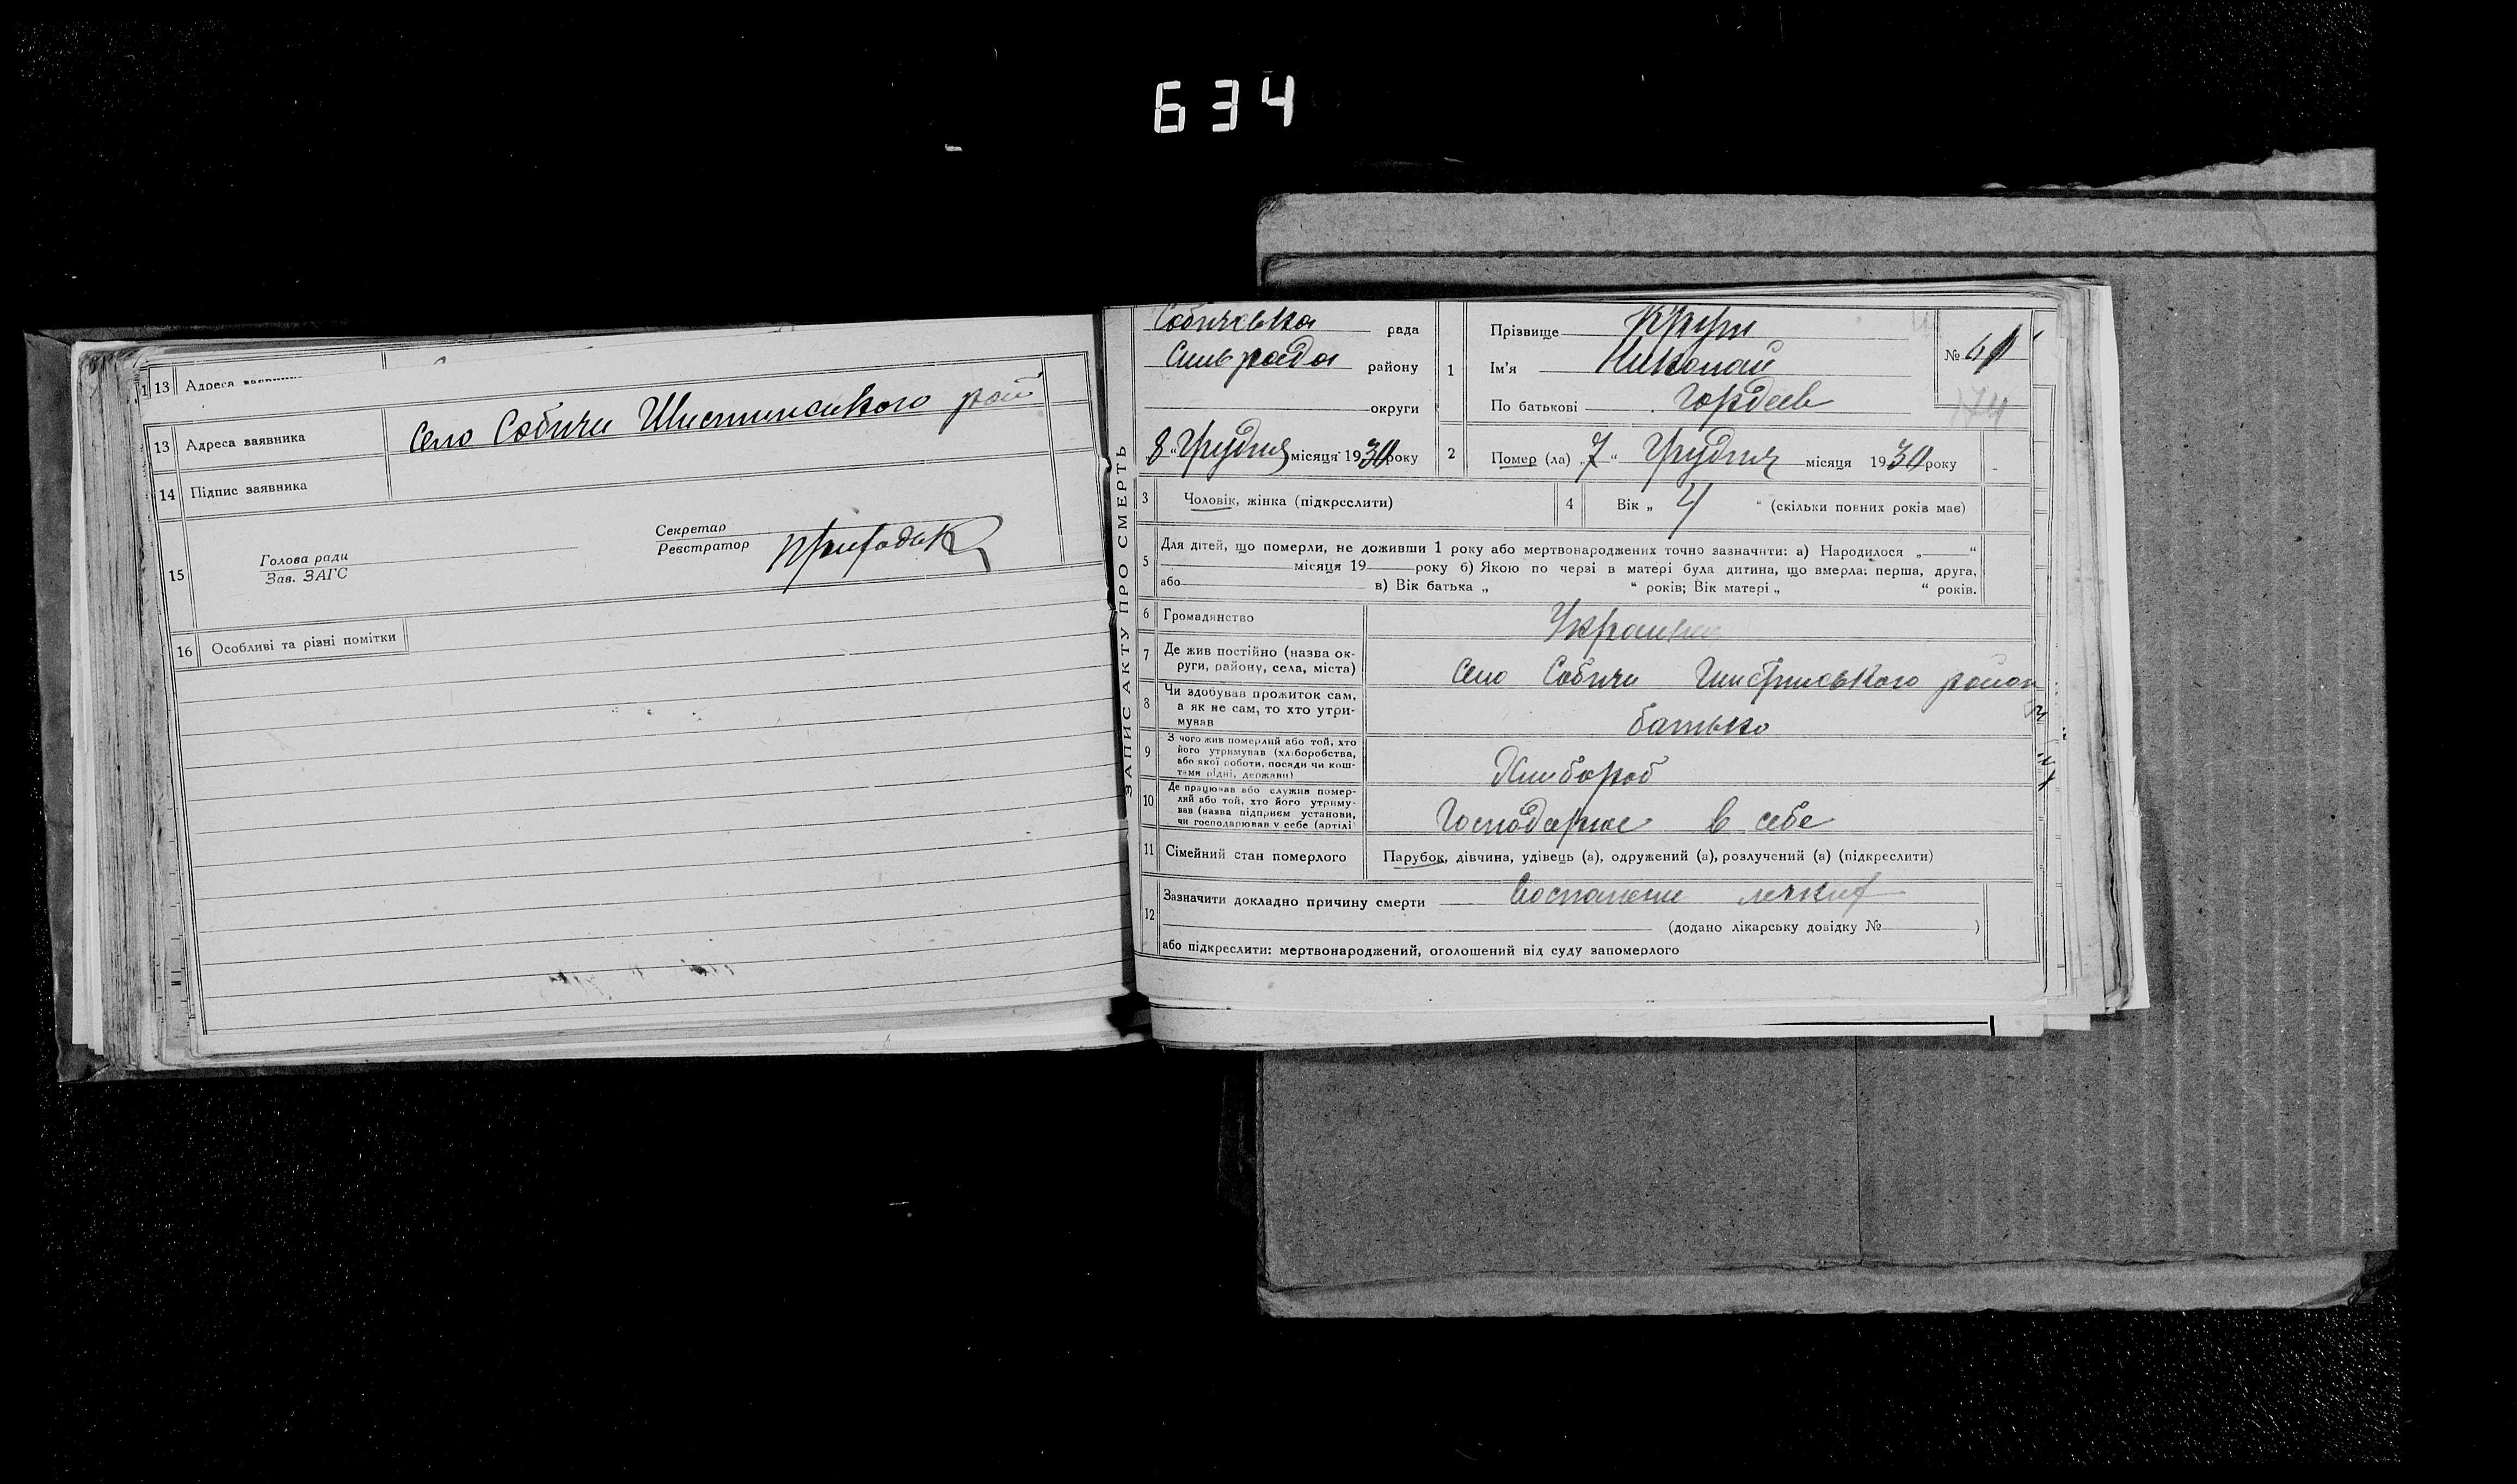 634
13 Адреса
13 Адреса заявника Село Собичи Шистинського рай
14 Підпис заявника
15 Голова ради
Зав. ЗАГС
Секретар
Реєстратор
16 Особливі та різні помітки
ЗАПИС АКТУ ПРО СМЕРТЬ
рада
Сільрада району
округи
8 " Грудня місяця 1930 року
1 Прізвище
Ім'я Николай
По батькові Гордеев
№
174
2 Помер (ла) „ 7 “ Грудня місяця 1930 року
3 Чоловік, жінка (підкреслити)
4 Вік „ 4 “ (скільки повних років має)
5 Для дітей, що померли, не доживши 1 року або мертвонароджених точно зазначити: а) Народилося „ “
місяця 19 року б) Якою по черзі в матері була дитина, що вмерла: перша, друга,
або в) Вік батька „ “ років; Вік матері „ “ років.
6 Громадянство
7 Де жив постійно (назва округи, району, села, міста) Село Собичи район
8 Чи здобував прожиток сам,
а як не сам, то хто утримував
батько
9 З чого жив померлий або той, хто
його утримував (хліборобства,
або якої роботи, посади чи коштами рідні, держави)
Хлибороб
10 Де працював або служив померлий або той, хто його утримував (назва підприєм установи,
чи господарював у себе (артілі
в себе
11 Сімейний стан померлого Парубок, дівчина, удівець (а), одружений (а), розлучений (а) (підкреслити)
12 Зазначити докладно причину смерти
(додано лікарську довідку № )
або підкреслити: мертвонароджений, оголошений від суду запомерлого